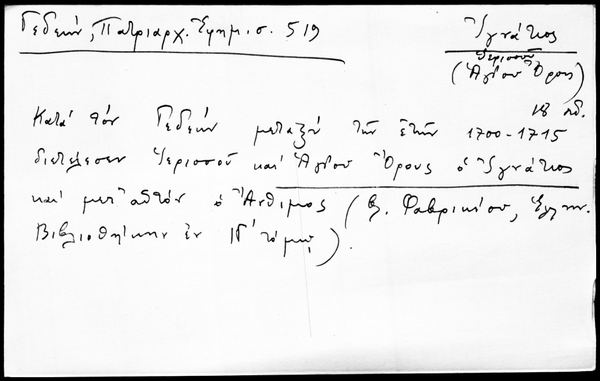 Γεδεών, Πατριαρχ. Ἐφημ. σ. 519
Ἰγνάτιος
Ἱερισσοῦ
(Ἁγίου Ὄρους)
18 αἰ.
Κατά τόν Γεδεών μεταξύ τῶν ἐτῶν 1700-1715
διετέλεσεν Ἱερισσοῦ καί Ἁγίου Ὄρους ὁ Ἰγνάτιος
καί μετ' αὐτόν ὁ Ἄνθιμος (βλ. Φαβρικίου, Ἑλλην.
Βιβλιοθήκην ἐν ΙΔ' τόμῳ).